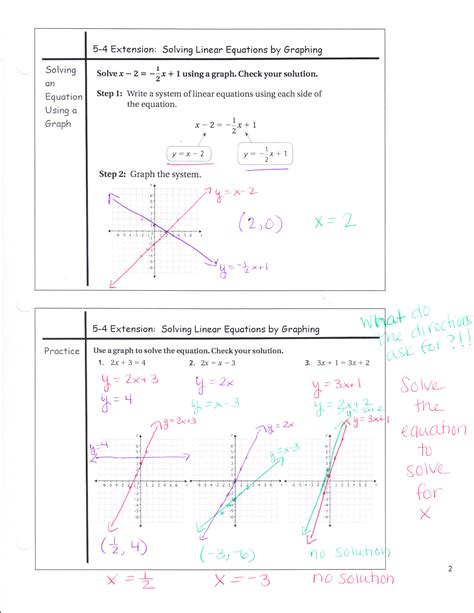 5-4 Extension: Solving Linear Equations by Graphing
Solving
an
Equation
Using a
Graph
Solve x − 2 = −1/2x + 1 using a graph. Check your solution.
Step 1: Write a system of linear equations using each side of
the equation.
x − 2 = −1/2x + 1
y = x − 2
y = −1/2x + 1
Step 2: Graph the system.
y = x-2
(2,0)
x = 2
y = -1/2x+1
What do
the directions
ask for?!!
5-4 Extension: Solving Linear Equations by Graphing
Practice
Use a graph to solve the equation. Check your solution.
1. 2x + 3 = 4
2. 2x = x − 3
3. 3x + 1 = 3x + 2
y = 2x+3
y = 2x
y = 3x+1
y = 4
y = x-3
y = 3x+2
Solve
the
equation
to
solve
for
x
y=4
y=2x+3
y=2x
y=x-3
y=3x+2
y=3x+1
(1/2, 4)
(-3, -6)
no solution
x = 1/2
x = -3
no solution
2